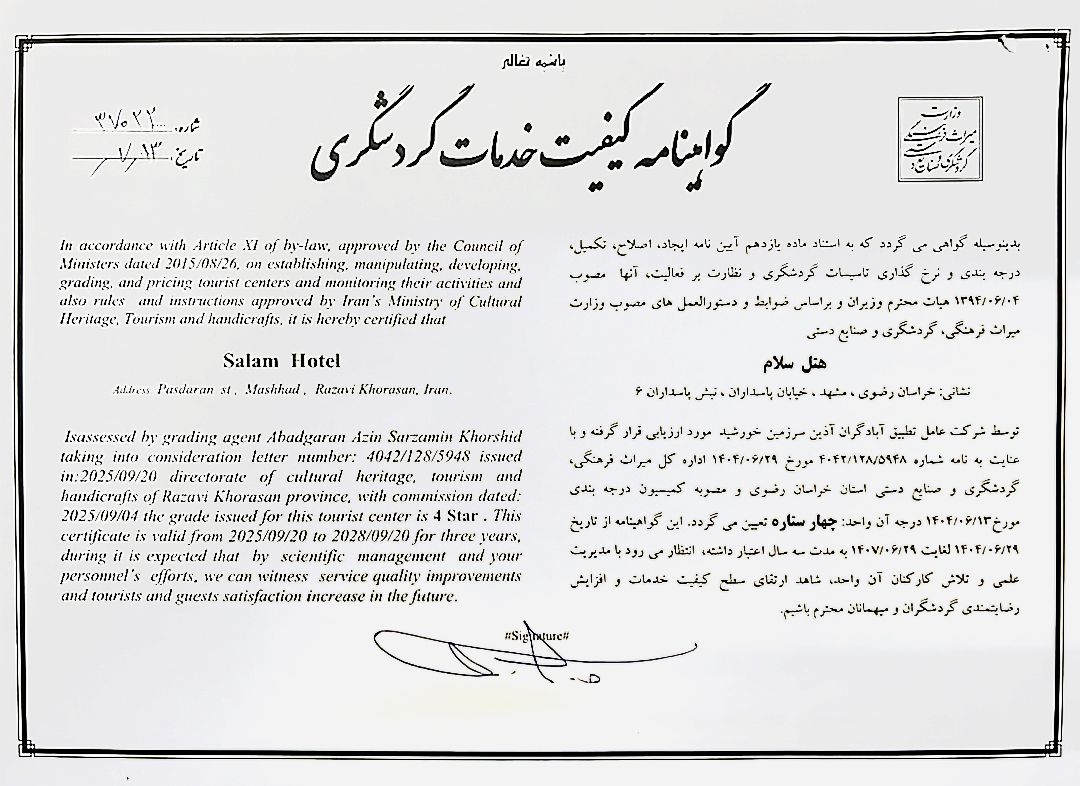 باسمه تعالی
گواهینامه کیفیت خدمات گردشگری
وزارت
میراث فرهنگی
گردشگری و صنایع دستی
شماره: ۳۷۰۲۲
تاریخ:
In accordance with Article XI of by-law, approved by the Council of
Ministers dated 2015/08/26, on establishing, manipulating, developing,
grading, and pricing tourist centers and monitoring their activities and
also rules and instructions approved by Iran's Ministry of Cultural
Heritage, Tourism and handicrafts, it is hereby certified that
Salam Hotel
Address: Pasdaran st , Mashhad , Razavi Khorasan, Iran.
Isassessed by grading agent Abadgaran Azin Sarzamin Khorshid
taking into consideration letter number: 4042/128/5948 issued
in:2025/09/20 directorate of cultural heritage, tourism and
handicrafts of Razavi Khorasan province, with commission dated:
2025/09/04 the grade issued for this tourist center is 4 Star . This
certificate is valid from 2025/09/20 to 2028/09/20 for three years,
during it is expected that by scientific management and your
personnel's efforts, we can witness service quality improvements
and tourists and guests satisfaction increase in the future.
بدینوسیله گواهی می گردد که به استناد ماده یازدهم آیین نامه ایجاد، اصلاح، تکمیل،
درجه بندی و نرخ گذاری تاسیسات گردشگری و نظارت بر فعالیت، آنها مصوب
۱۳۹۴/۰۶/۰۴ هیات محترم وزیران و براساس ضوابط و دستورالعمل های مصوب وزارت
میراث فرهنگی، گردشگری و صنایع دستی
هتل سلام
نشانی: خراسان رضوی ، مشهد ، خیابان پاسداران ، نبش پاسداران ۶
توسط شرکت عامل تطبیق آبادگران آذین سرزمین خورشید مورد ارزیابی قرار گرفته و با
عنایت به نامه شماره ۴۰۴۲/۱۲۸/۵۹۴۸ مورخ ۱۴۰۴/۰۶/۲۹ اداره کل میراث فرهنگی،
گردشگری و صنایع دستی استان خراسان رضوی و مصوبه کمیسیون درجه بندی
مورخ۱۴۰۴/۰۶/۱۳ درجه آن واحد: چهار ستاره تعیین می گردد. این گواهینامه از تاریخ
۱۴۰۴/۰۶/۲۹ لغایت ۱۴۰۷/۰۶/۲۹ به مدت سه سال اعتبار داشته، انتظار می رود با مدیریت
علمی و تلاش کارکنان آن واحد، شاهد ارتقای سطح کیفیت خدمات و افزایش
رضایتمندی گردشگران و میهمانان محترم باشیم.
#Signature#